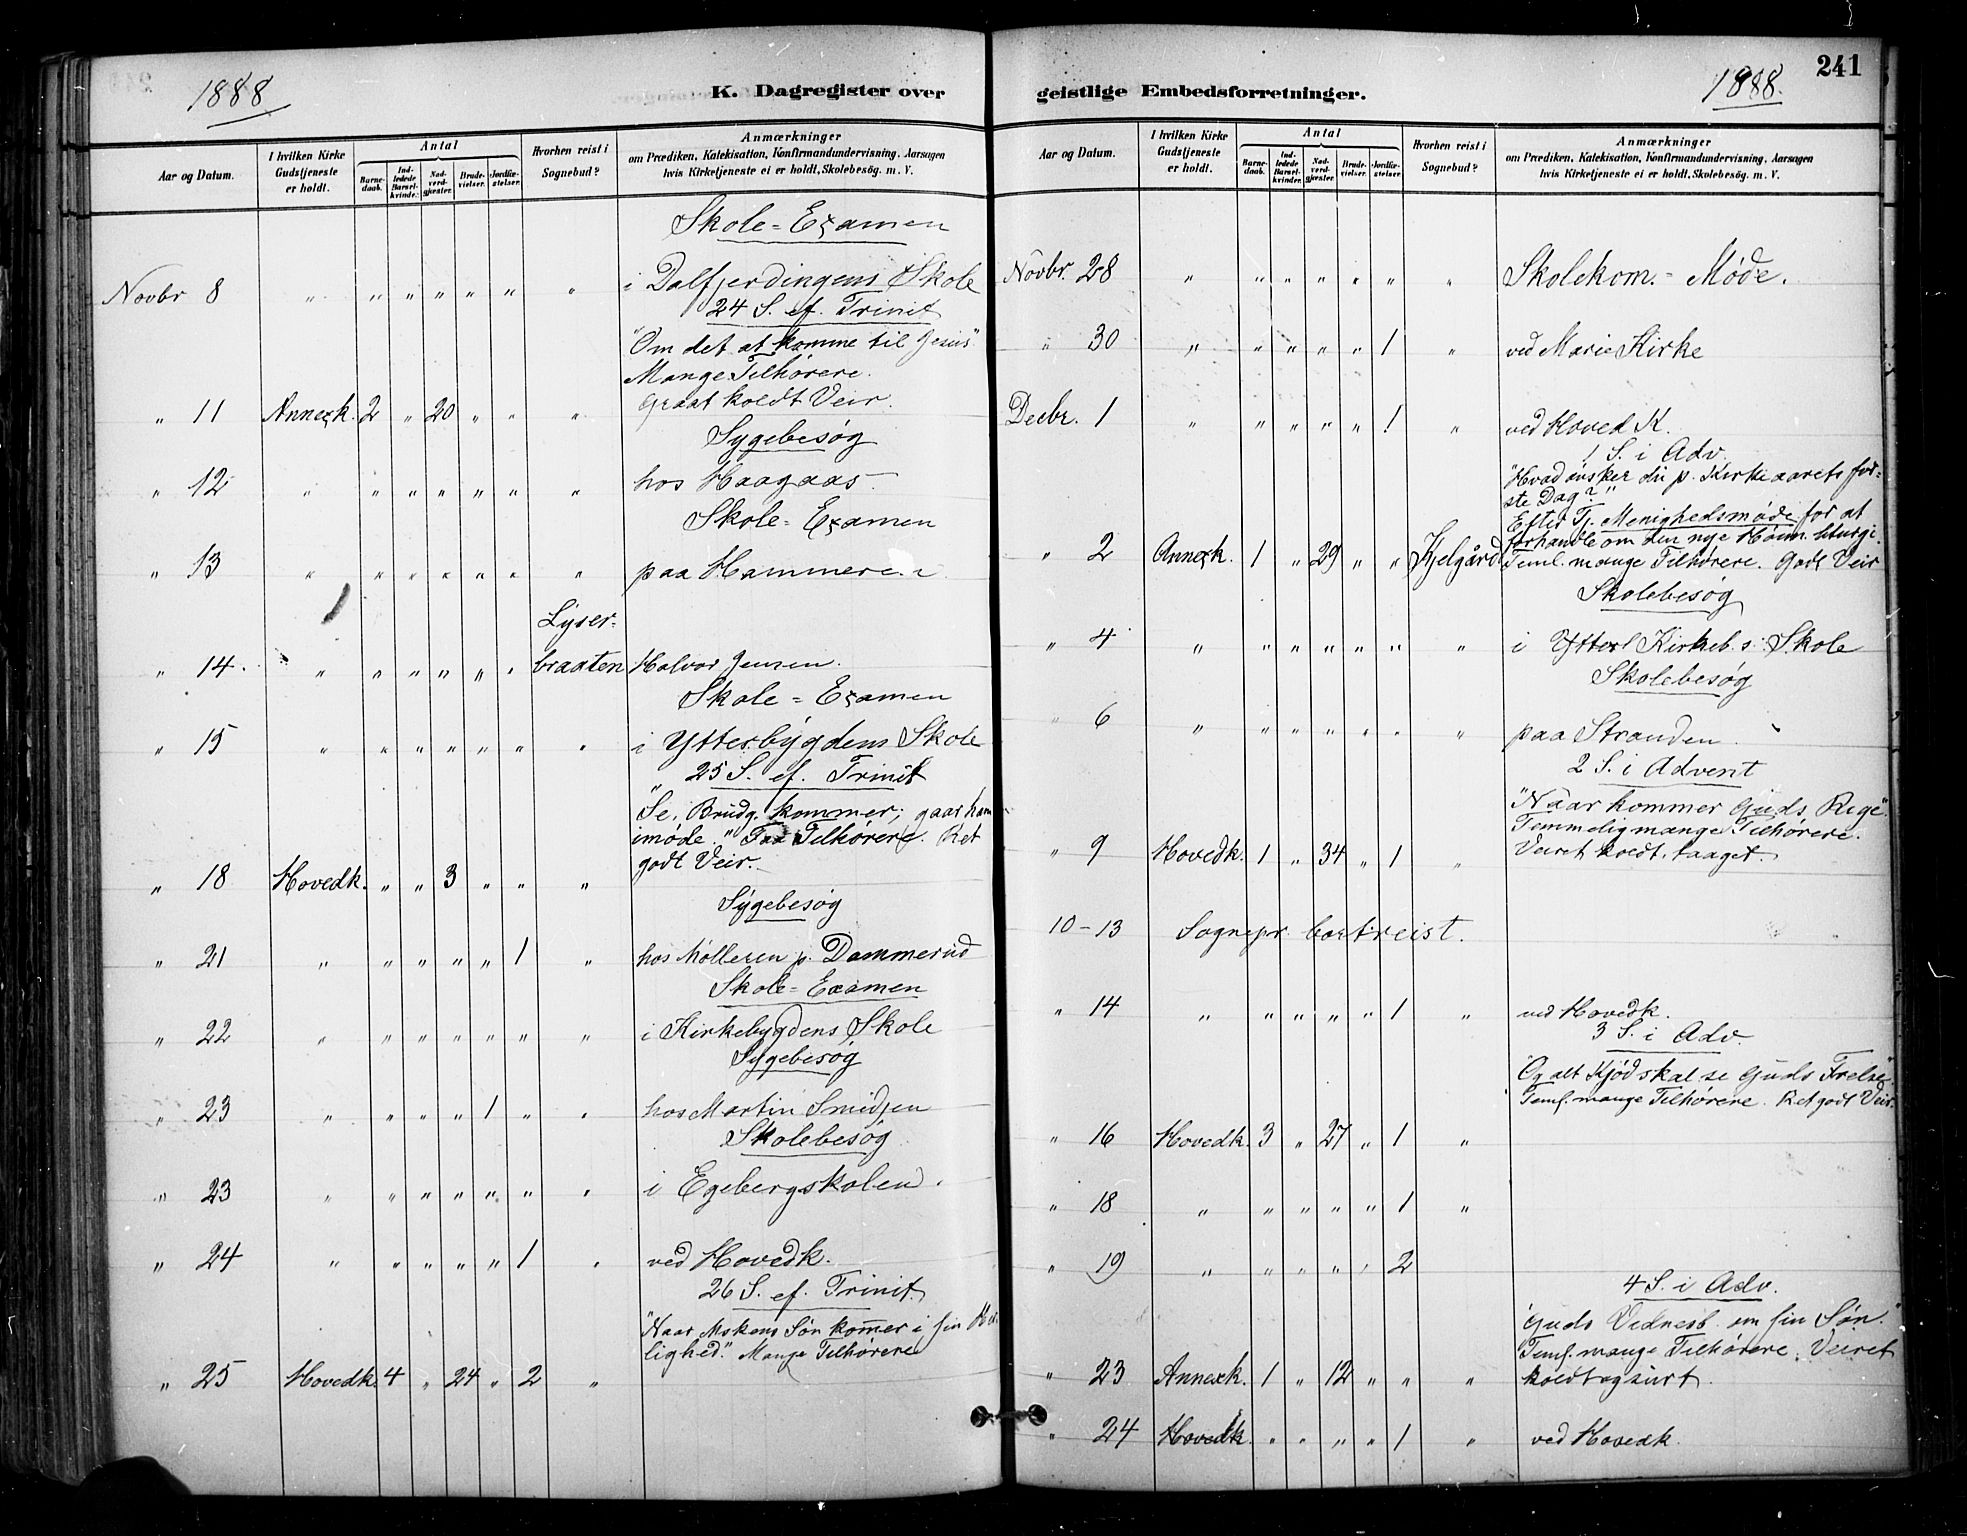 1888
K. Dagregister over
Aar og Datum.
I hvilken Kirke Gudstjeneste er holdt.
Antal
Barnedaab.
Indledede Barselkvinder.
Nadverdgjester.
Brudevielser.
Jordfæstelser.
Hvorhen reist i Sognebud?
Anmærkninger
om Prædiken, Katekisation, Konfirmandundervisning, Aarsagen
hvis Kirketjeneste ei er holdt, Skolebesög m. V.
Skole-Examen
Novbr 8 " " " " " " " i Dalfjerdingens Skole
24 S. ef. Trinit
"Om det at komme til Jesus"
Mange Tilhørere.
Graat koldt Veir.
" 11 Annexk. 2 " 20 " " "
Sygebesøg
" 12 " " " " " " " hos Haagaas
Skole-Examen
" 13 " " " " " " " paa Hammeren
Lyser-
" 14. " " " " " " braaten Halvor Jensen.
Skole-Examen
" 15 " " " " " " " i Ytterbygdens Skole
25 S. ef. Trinit
"Se, Brudg. kommer; gaar ham
imøde." Faa Tilhørere. Ret
godt Veir.
" 18 Hovedk. " " 3 " " "
Sygebesøg
" 21 " " " " " 1 " hos Mølleren p. Dammerud
Skole-Examen
" 22 " " " " " " " i Kirkebygdens Skole
Sygebesøg
" 23 " " " " 1 " " hos Martin Smedjen
Skolebesøg
" 23 " " " " " " " i Egebergskolen.
" 24 " " " " " 1 " ved Hovedk.
26 S. ef. Trinit.
"Naar Mskens Søn kommer i sin Her-
lighed." Mange Tilhørere
" 25 Hovedk. 4 " 24 " 2 "
geistlige Embedsforretninger.
1888.
241
Aar og Datum.
I hvilken Kirke Gudstjeneste er holdt.
Antal
Barnedaab.
Indledede Barselkvinder.
Nadverdgjester.
Brudevielser.
Jordfæstelser.
Hvorhen reist i Sognebud?
Anmærkninger
om Prædiken, Katekisation, Konfirmandundervisning, Aarsagen
hvis Kirketjeneste ei er holdt, Skolebesög m. V.
Novbr. 28 " " " " " " " Skolekom.-Møde.
" 30 " " " " " 1 " ved Marie Kirke
Decbr. 1 " " " " " 1 " ved Hoved K.
1 S. i Adv.
"Hvad ønsker du p. Kirkeaarets før-
ste Dag?"
Efter Tj. Menighedsmøde for at
forhandle om den nye Høim. liturgi.
" 2 Annexk. 1 " 29 " " Kjelgård Teml. mange Tilhørere. Godt Veir
Skolebesøg
" 4 " " " " " " " i Ytter Kirkeb.s. Skole
Skolebesøg
" 6 " " " " " " " paa Stranden
2 S. i Advent
"Naar kommer Guds Rige"
Temmelig mange Tilhørere.
" 9 Hovedk. 1 " 34 " 1 " Veiret koldt, taaget.
10-13 Sognepr. bortreist.
" 14 " " " " " 1 " ved Hovedk.
3 S. i Adv.
"Og alt Kjød skal se Guds Frelse"
Teml. mange Tilhørere. Ret godt Veir.
" 16 Hovedk. 3 " 27 " 1 "
" 18 " " " " " 1 "
" 19 " " " " " 2
4 S. i Adv.
"Guds Vidnesb. om sin Søn."
Teml. mange Tilhørere. Veiret
" 23 Annexk. 1 " 12 " " " koldt og surt.
" 24 Hovedk. " " " " 1 " ved Hovedk.